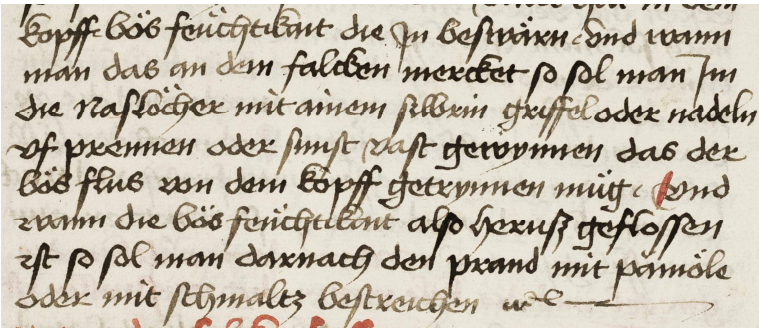 kopff bös feüchtikait die Jn beswärn vnd wann
man das an dem falcken mercket so sol man Jm
die Naslöcher mit ainem silbrin griffel oder nadeln
vf prennen oder sunst vast gewynnen das der
bös flus von dem kopff getrynnen müg Vnd
wann die bös feüchtikait also herusz geflossen
ist so sol man darnach den prand mit pämöle
oder mit schmaltz bestreichen